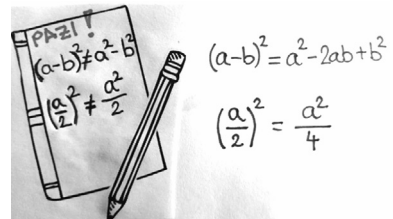 PAZI!
(a-b)²≠a²-b²
(a/2)² ≠ a²/2
(a-b)²=a²-2ab+b²
(a/2)² = a²/4